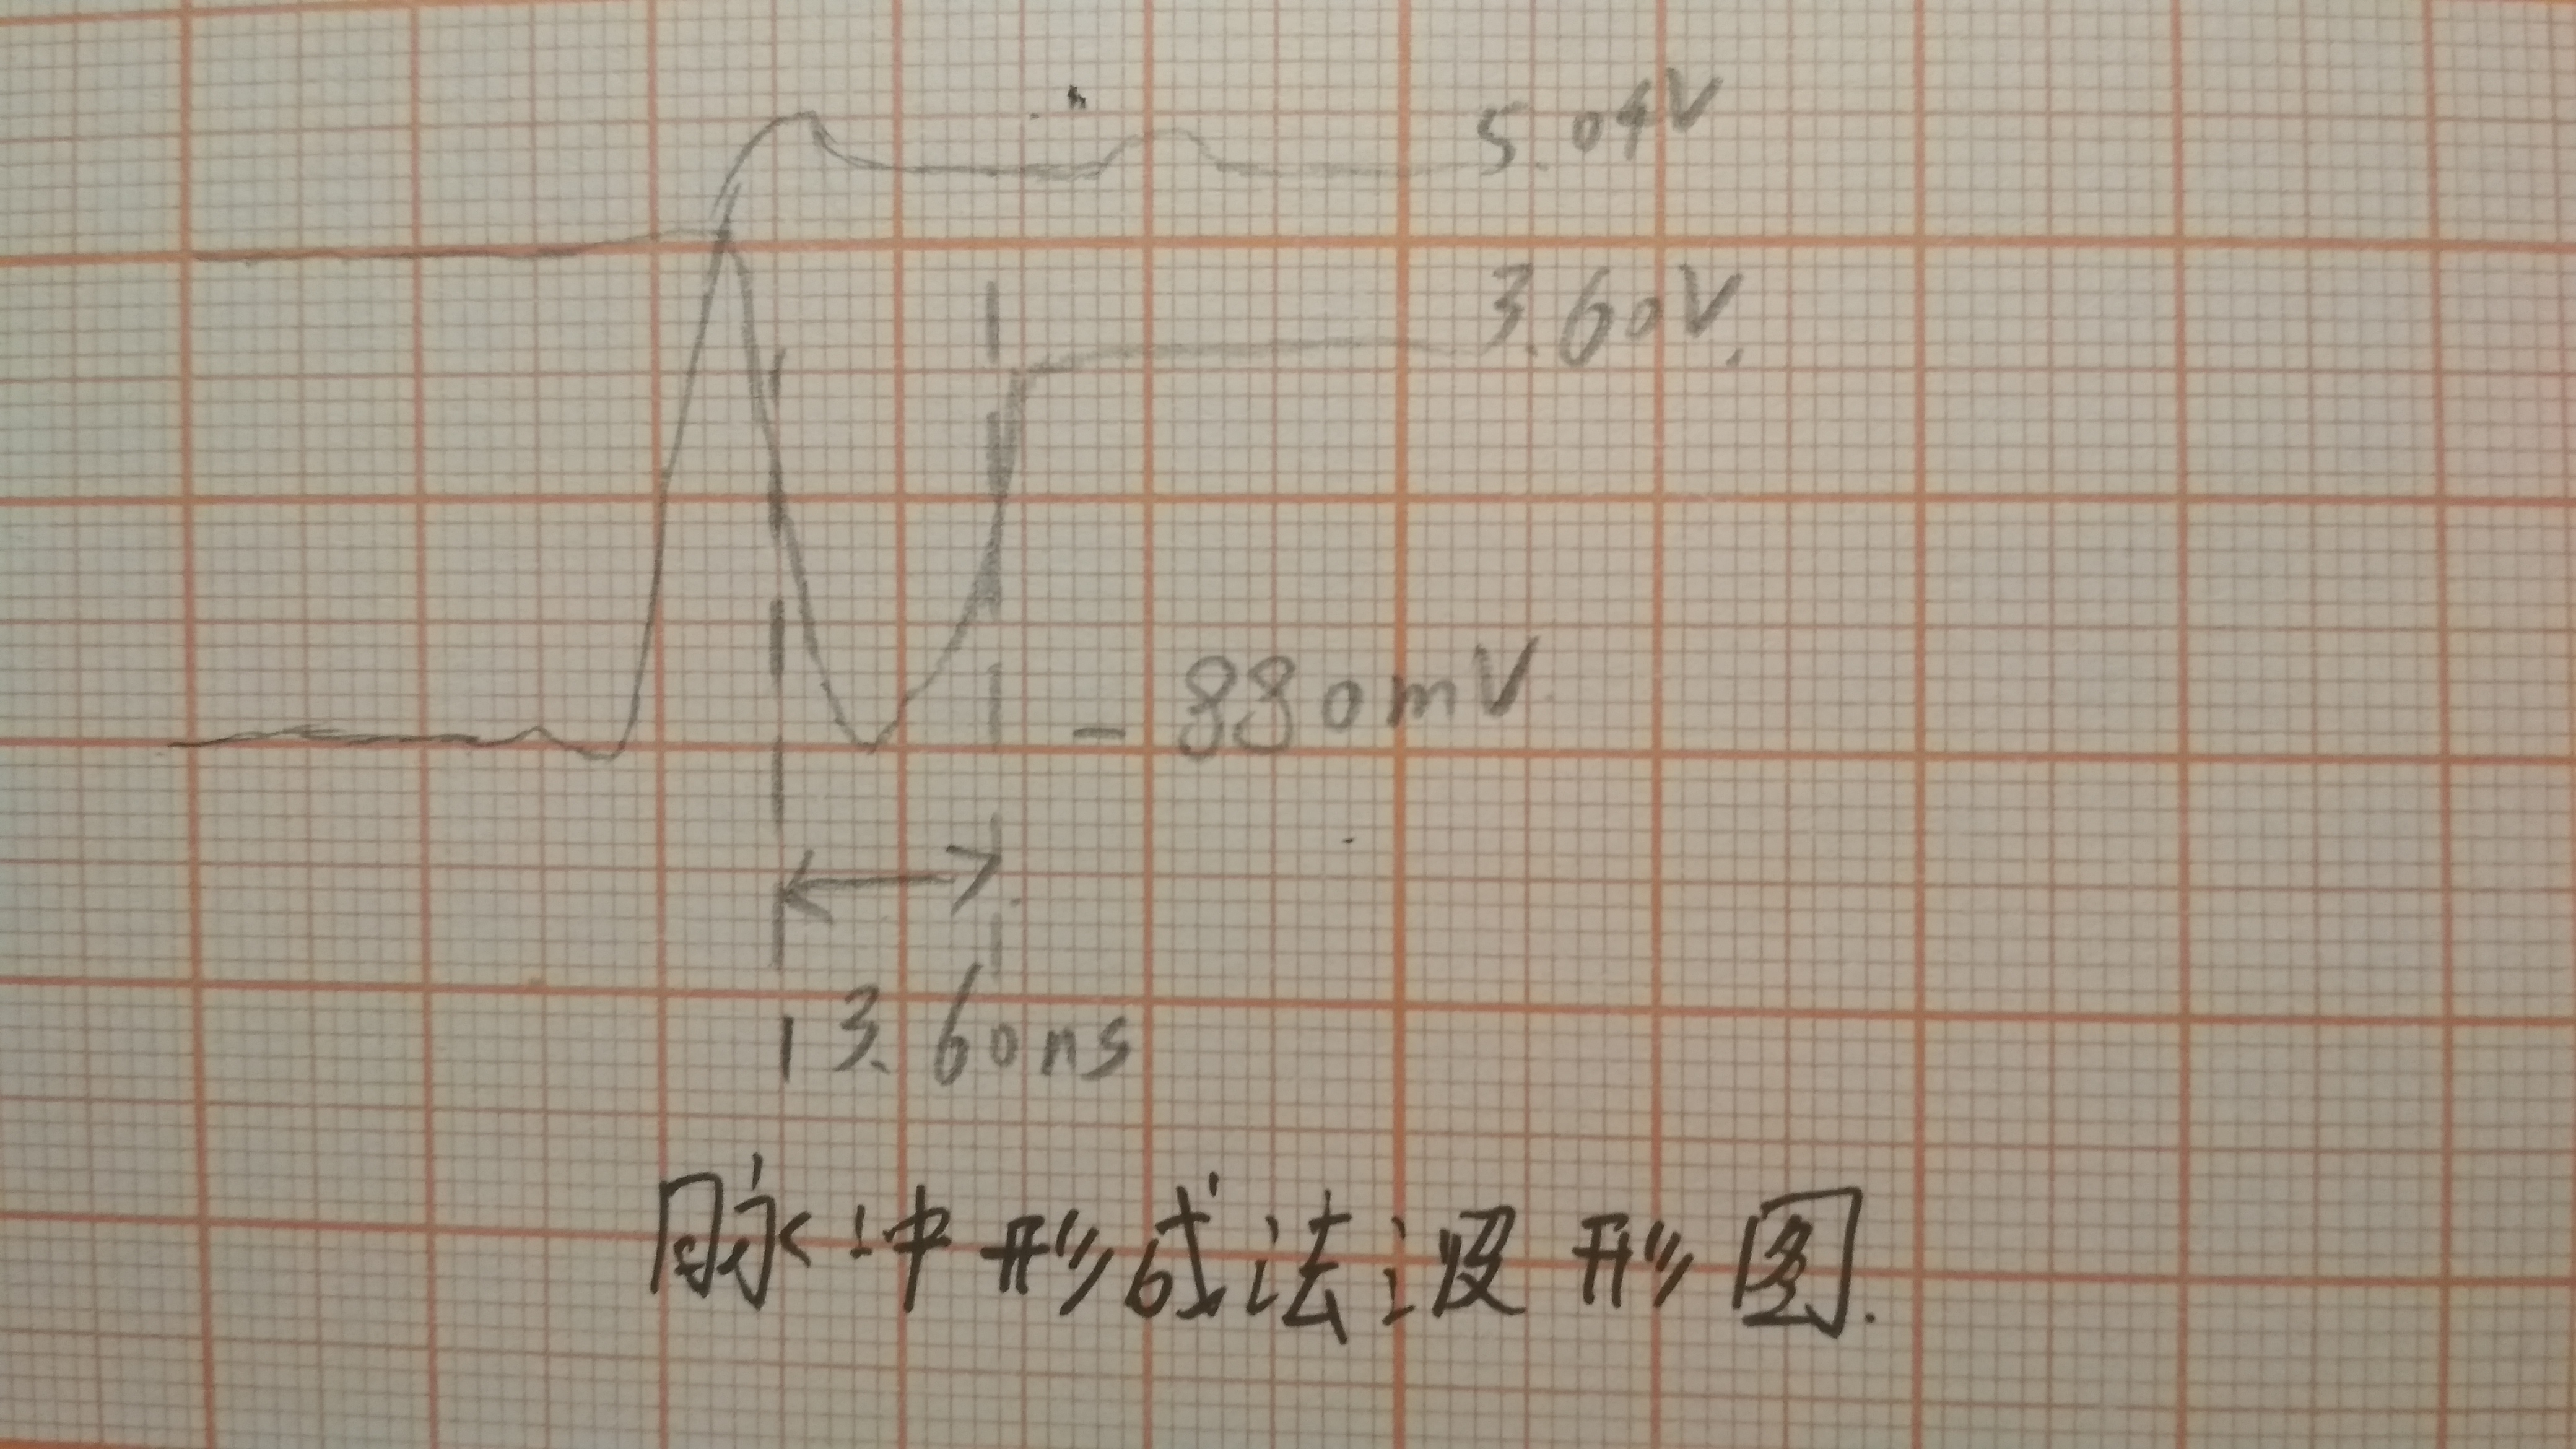 5.04V
3.60V.
-880mV
13.60ns
脉冲形成法波形图.